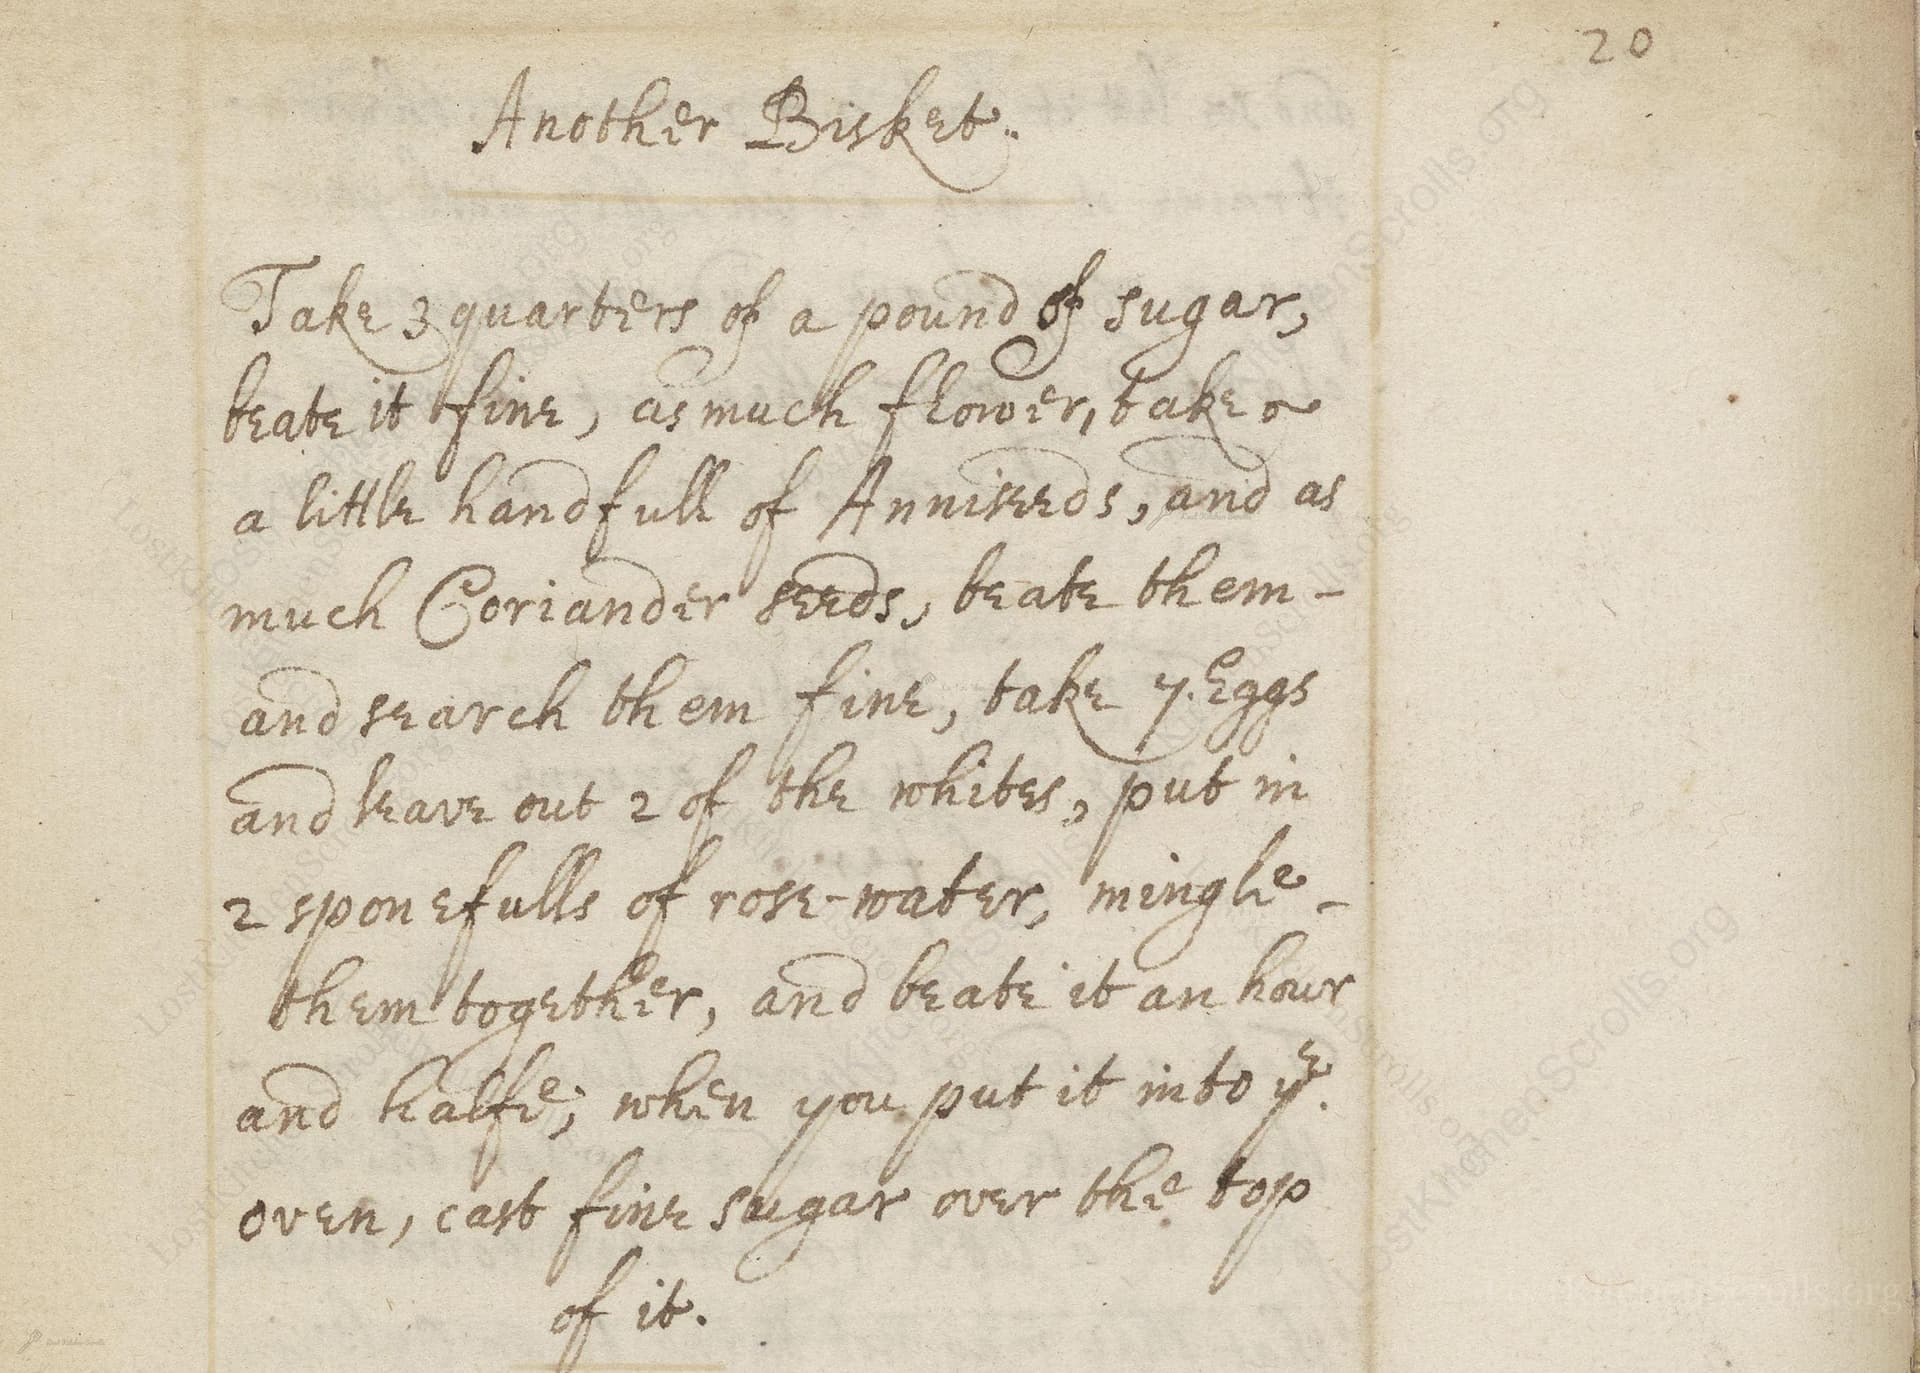 20
Another Bisket.
Take 3 quarters of a pound of sugar,
beate it fine, as much flower, take
a little handfull of Anniseeds, and as
much Coriander seeds, beate them -
and search them fine, take 7. Eggs
and leave out 2 of the whites, put in
2 sponefulls of rose-water, mingle -
them together, and beate it an hour
and halfe; when you put it into yᵉ.
oven, cast fine sugar over the top
of it.
LostKitchenScrolls.org